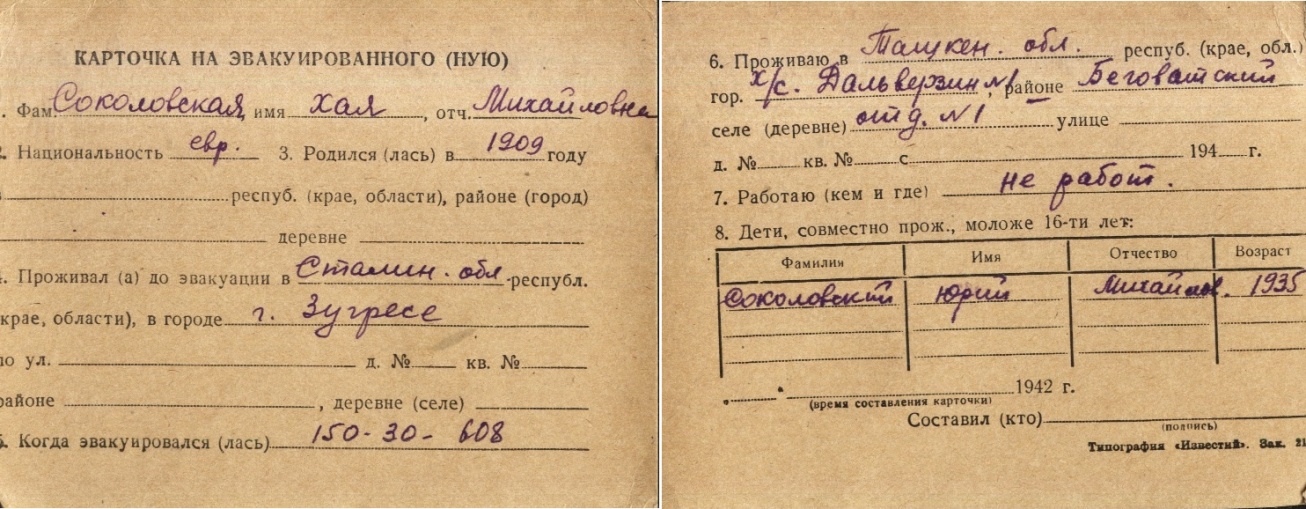 КАРТОЧКА НА ЭВАКУИРОВАННОГО (НУЮ)
. Фам. Соколовская, имя Хая, отч. Михайловна
2. Национальность евр. 3. Родился (лась) в 1909 году
респуб. (крае, области), районе (город)
деревне
. Проживал (а) до эвакуации в Сталин. обл. республ.
крае, области), в городе г. Зугресе
по ул. д. № кв. №
районе , деревне (селе)
5. Когда эвакуировался (лась) 150-30-608
6. Проживаю в Ташкен. обл. респуб. (крае, обл.)
гор. х/с. Дальверзин №1, районе Беговатский
селе (деревне) отд. №1 улице
д. № кв. № с 194 г.
7. Работаю (кем и где) не работ.
8. Дети, совместно прож., моложе 16-ти лет:
Фамилия Имя Отчество Возраст
Соколовский Юрий Михайлов. 1935
" " 1942 г.
(время составления карточки)
Составил (кто)
(подпись)
Типография «Известий». Зак. 21